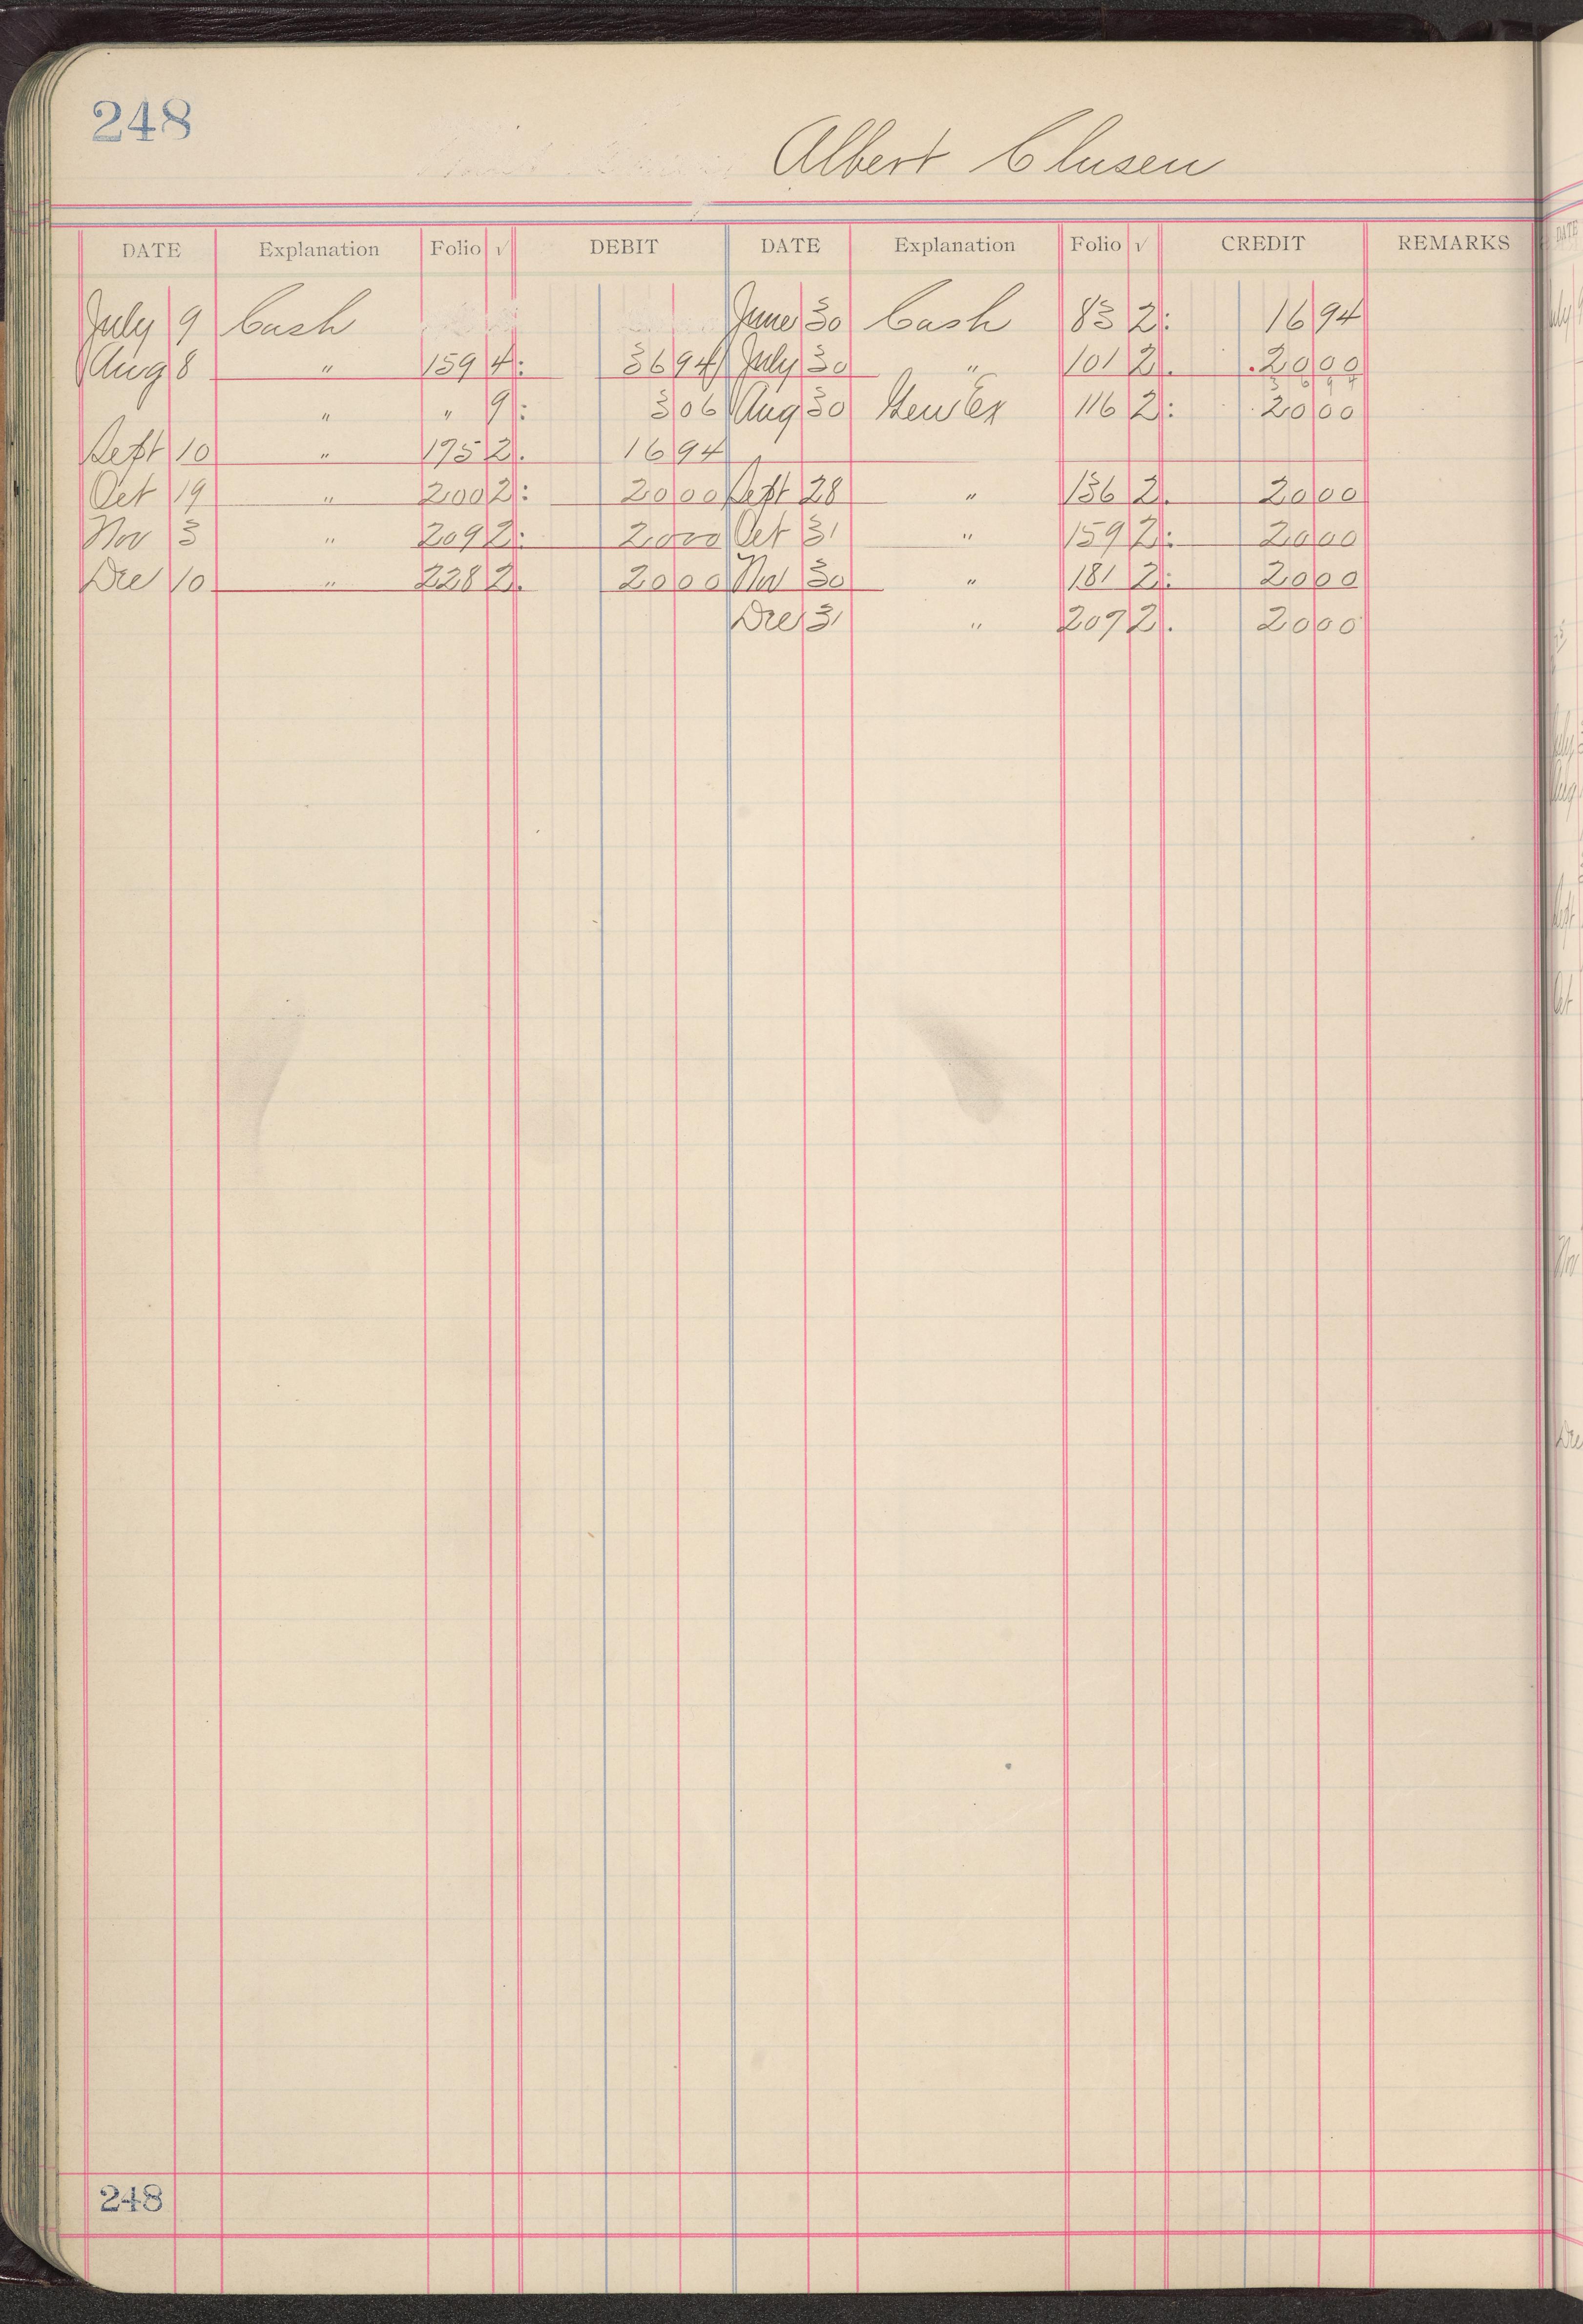 248
Albert Clusen
DATE Explanation Folio √ DEBIT DATE Explanation Folio √ CREDIT REMARKS
July 9 Cash June 30 Cash 83 2: 16 94
Aug 8 " 159 4: 36 94 July 30 " 101 2. 20 00
36 94
" " 9: 3 06 Aug 30 Gen Ex 116 2: 20 00
Sept 10 " 175 2. 16 94
Oct 19 " 200 2: 20 00 Sept 28 " 136 2. 20 00
Nov 3 " 209 2: 20 00 Oct 31 " 159 2: 20 00
Dec 10 " 228 2. 20 00 Nov 30 " 181 2: 20 00
Dec 31 " 207 2. 20 00
248